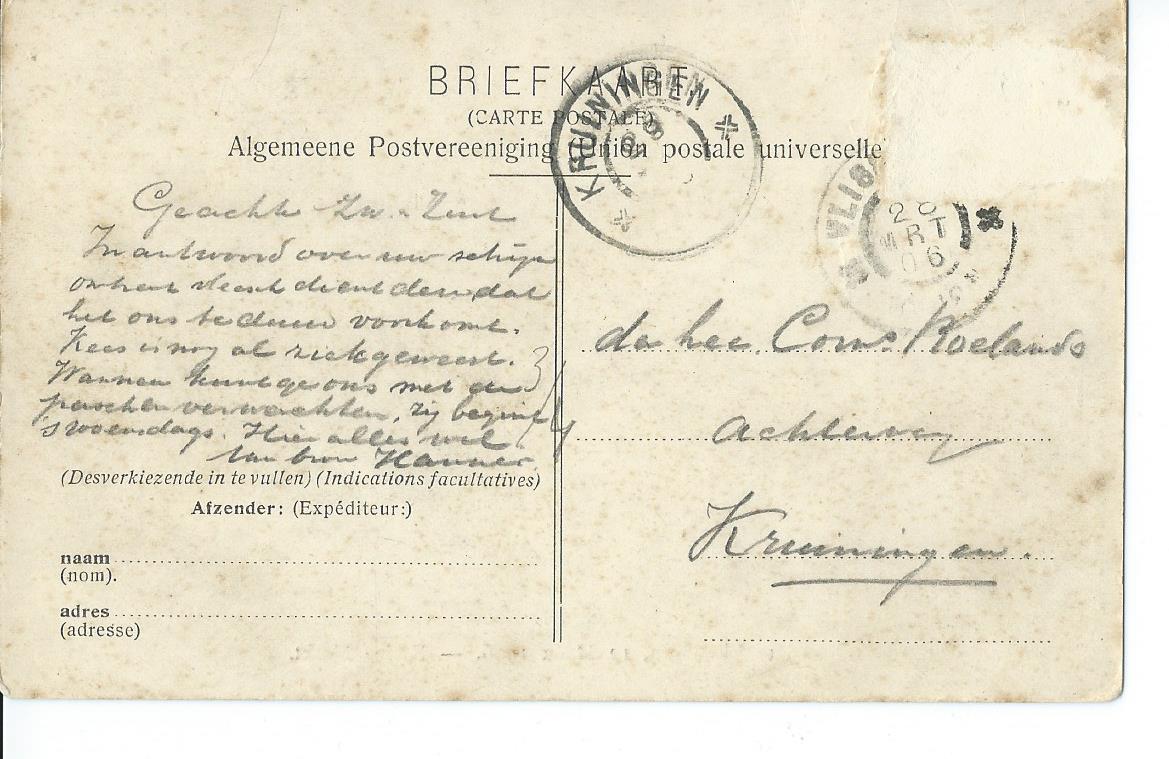 BRIEFKAART
(CARTE POSTALE)
Algemeene Postvereeniging (Union postale universelle
KRUININGEN
VLIS
28
MRT
06
Geachte Zw. Zust
In antwoord over uw schrijven
het ons voorkomt.
Kees is nog al ziek geweest.
Wanneer kunt ge ons met de
paschen verwachten, zij begint
swoensdags. Hier alles wel
(Desverkiezende in te vullen) (Indications facultatives)
Afzender: (Expéditeur:)
naam
(nom).
adres
(adresse)
de heer Corns Roelands
Achterweg
Kruiningen.